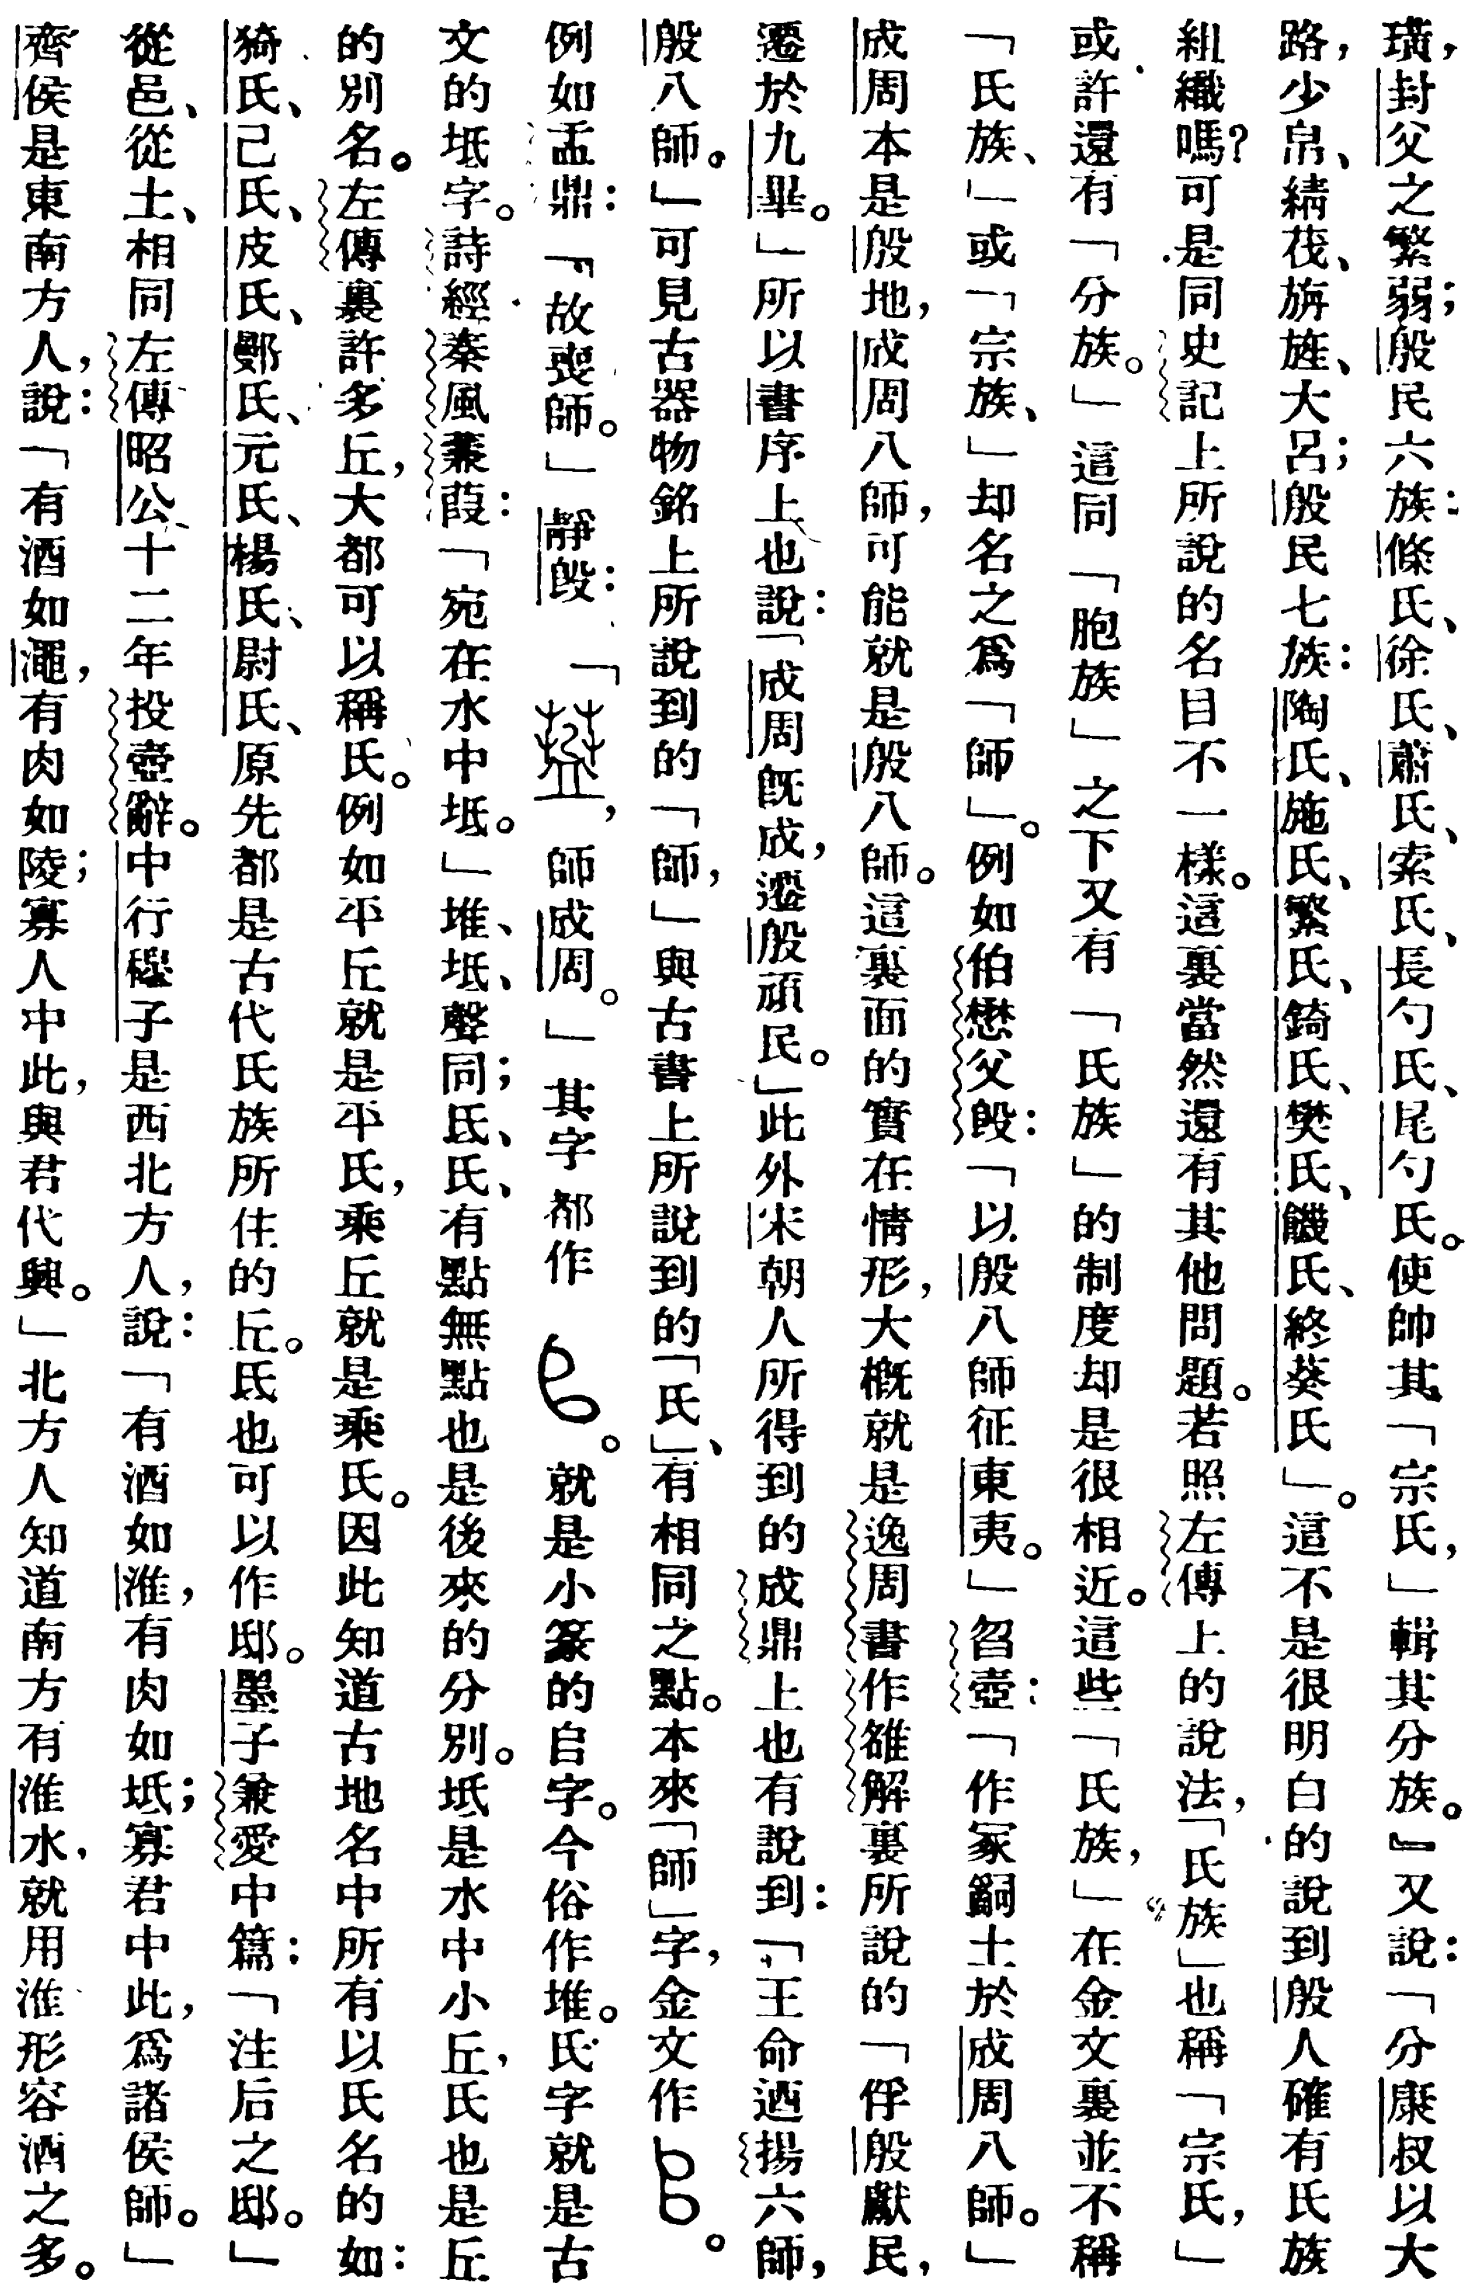 璜，封父之繁弱；殷民六族：條氏、徐氏、蕭氏、索氏、長勺氏、尾勺氏。使帥其「宗氏，」輯其分族。』又說：「分康叔以大
路，少帛、綪茷、旃旌、大呂；殷民七族：陶氏、施氏、繁氏、錡氏、樊氏、饑氏、終葵氏」。這不是很明白的說到殷人確有氏族
組織嗎？可是同史記上所說的名目不一樣。這裏當然還有其他問題。若照左傳上的說法，「氏族」也稱「宗氏，」
或許還有「分族。」這同「胞族」之下又有「氏族」的制度却是很相近。這些「氏族，」在金文裏並不稱
「氏族、」或「宗族、」却名之爲「師」。例如伯懋父𣪘：「以殷八師征東夷。」曶壺：「作冢嗣土於成周八師。」
成周本是殷地，成周八師，可能就是殷八師。這裏面的實在情形，大概就是逸周書作雒解裏所說的「俘殷獻民，
遷於九畢。」所以書序上也說：「成周旣成，遷殷頑民。」此外宋朝人所得到的成鼎上也有說到：「王命迺揚六師，
殷八師。」可見古器物銘上所說到的「師，」與古書上所說到的「氏」、有相同之點。本來「師」字，金文作。
例如盂鼎：「故喪師。」靜𣪘：「，師成周。」其字都作。就是小篆的𠂤字。今俗作堆。氏字就是古
文的坻字。詩經秦風蒹葭：「宛在水中坻。」堆、坻、聲同；氐、氏、有點無點也是後來的分別。坻是水中小丘，氏也是丘
的別名。左傳裏許多丘，大都可以稱氏。例如平丘就是平氏，乘丘就是乘氏。因此知道古地名中所有以氏名的如：
猗氏、己氏、皮氏、鄡氏、元氏、楊氏、尉氏、原先都是古代氏族所住的丘。氐也可以作邸。墨子兼愛中篇：「注后之邸。」
從邑、從土、相同左傳昭公十二年投壺辭。中行穆子是西北方人，說：「有酒如淮，有肉如坻；寡君中此，爲諸侯師。」
齊侯是東南方人，說：「有酒如澠，有肉如陵；寡人中此，與君代興。」北方人知道南方有淮水，就用淮形容酒之多。